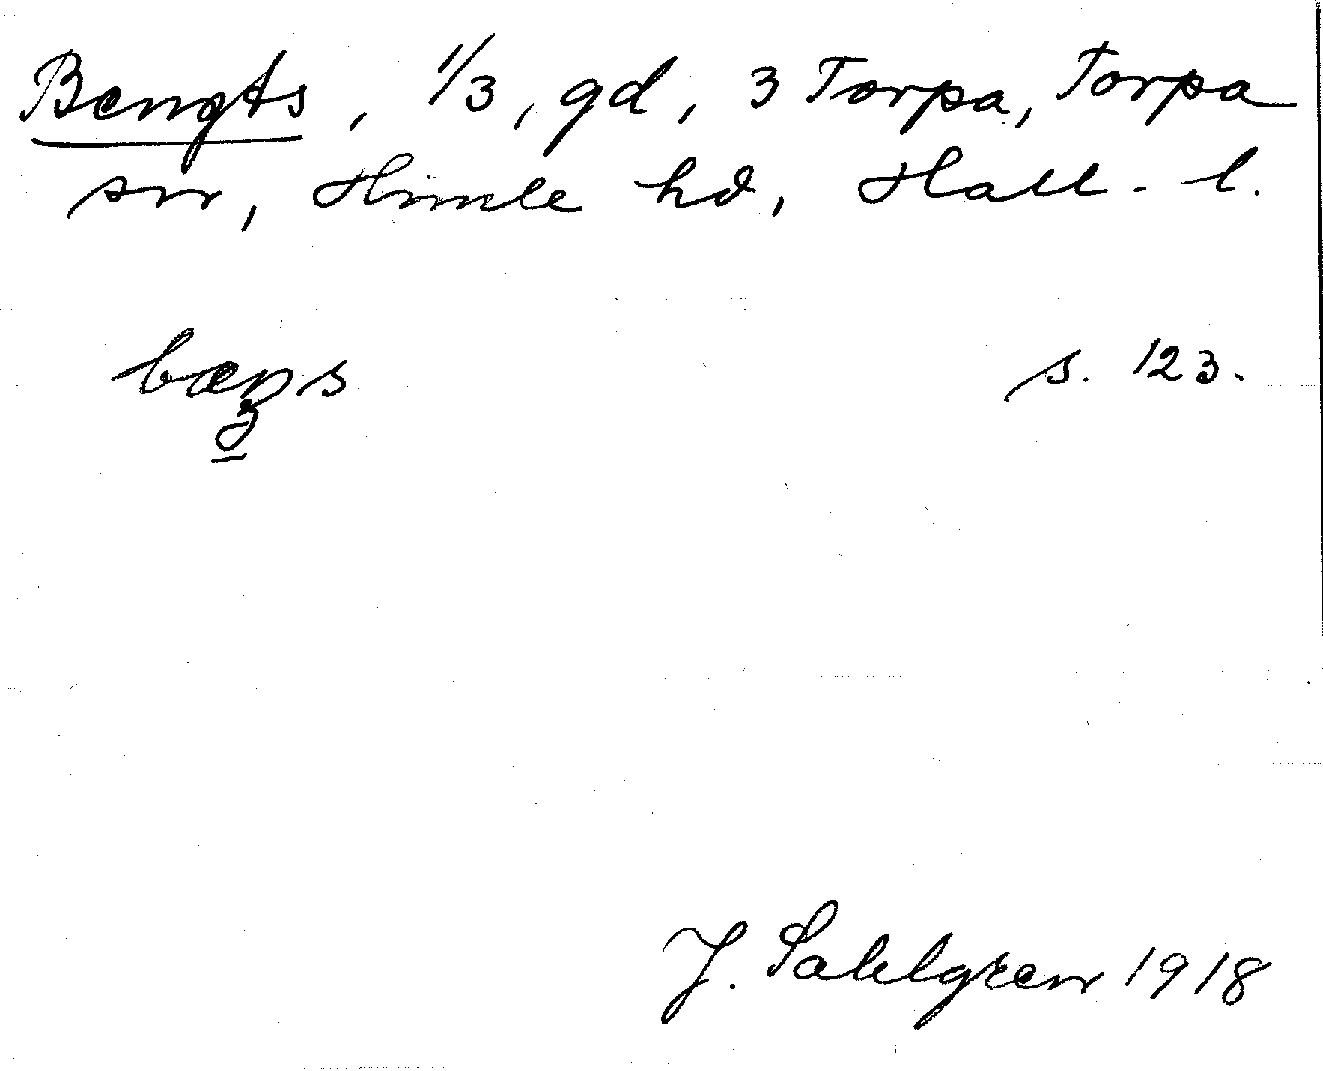 Bengts, 1/3, gd, 3 Torpa, Torpa
sn, Himle hd, Hall. l.
s. 123.
J. Sahlgren 1918